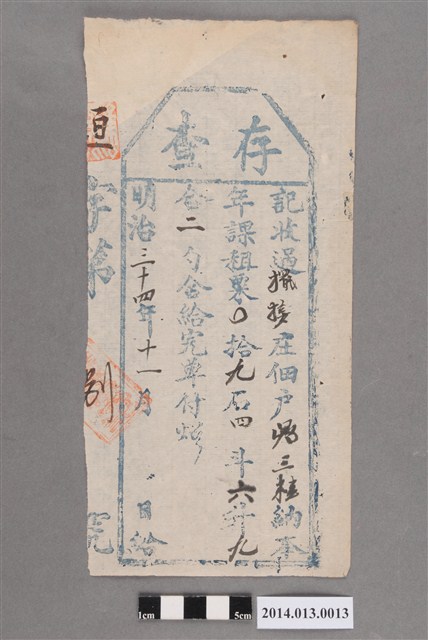 存查
記收過獵接庄佃戶馮三桂納本
年課租粟0拾九石四斗六升九
合二勺合給完單付炤
明治三十四年十一月 日給
恒字第
別
完
1cm
5cm
2014.013.0013